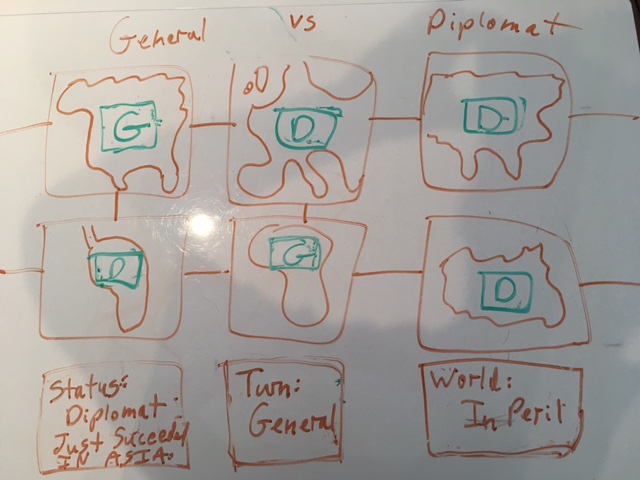 General vs Diplomat
G D D
D G D
Status:
Diplomat
Just Succeeded
IN ASIA.
Turn:
General
World:
In Peril